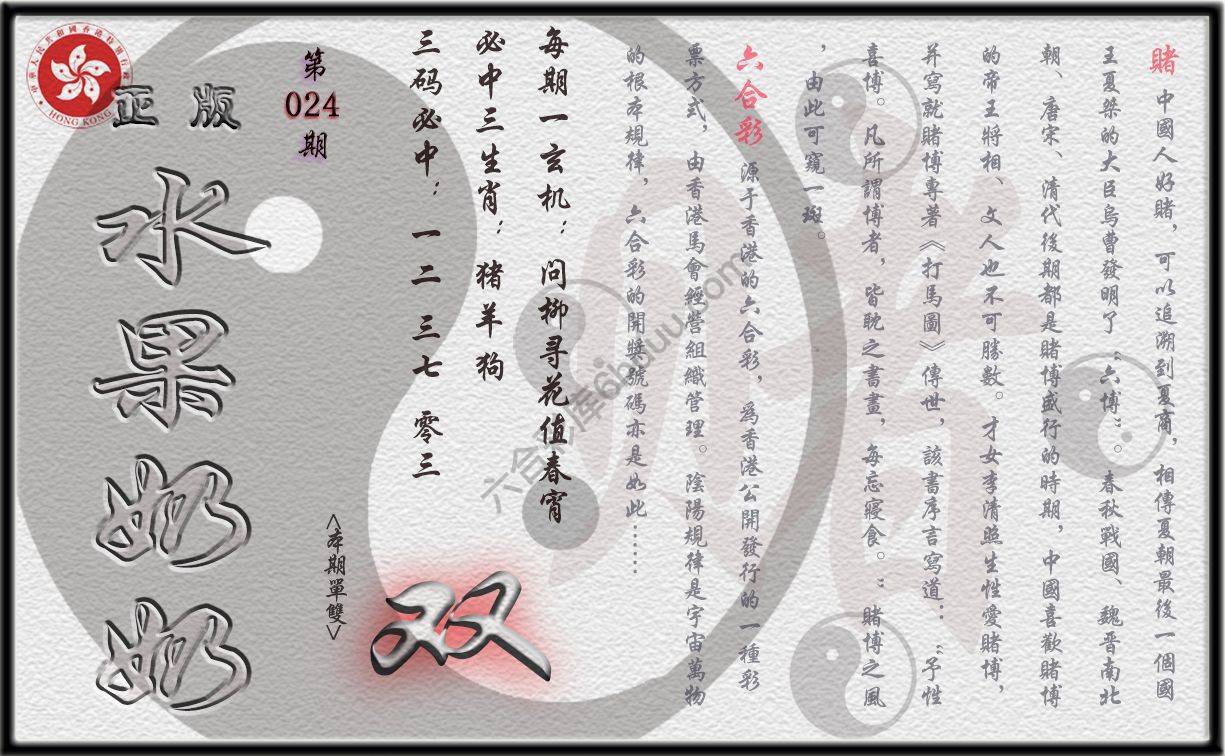 賭 中國人好賭，可以追溯到夏商，相傳夏朝最後一個國
王夏桀的大臣烏曹發明了“六博”。春秋戰國、魏晋南北
朝、唐宋、清代後期都是賭博盛行的時期，中國喜歡賭博
的帝王將相、文人也不可勝數。才女李清照生性愛賭博，
并寫就賭博專著《打馬圖》傳世，該書序言寫道：“予性
喜博。凡所謂博者，皆耽之晝晝，每忘寢食。”賭博之風
，由此可窺一斑。
六合彩 源于香港的六合彩，爲香港公開發行的一種彩
票方式，由香港馬會經營組織管理。陰陽規律是宇宙萬物
的根本規律，六合彩的開獎號碼亦是如此......
每期一玄机：问柳寻花值春宵
必中三生肖：猪羊狗
三码必中：一二 三七 零三
第
024
期
<本期單雙>
双
正版
水果奶奶
HONG KONG
六合彩库6huuu.com